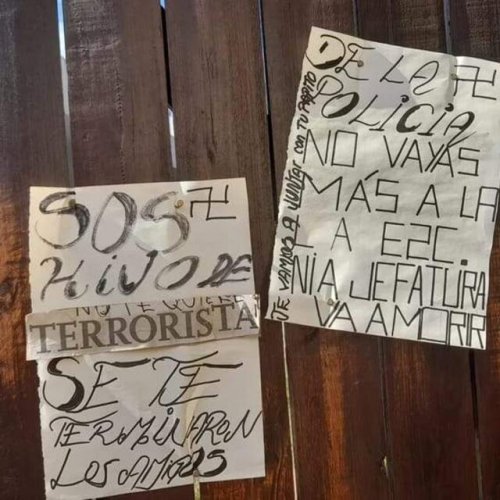 SOS
HIJO DE
NO TE QUIERE
TERRORISTA
SE TE
TERMINARON
LOS AMIGOS
DE LA
POLICIA
NO VAYAS
MÁS A LA
E2C.
NI A JEFATURA
VA A MORIR
TE VAMOS A JUNTAR CON TU PAPITO